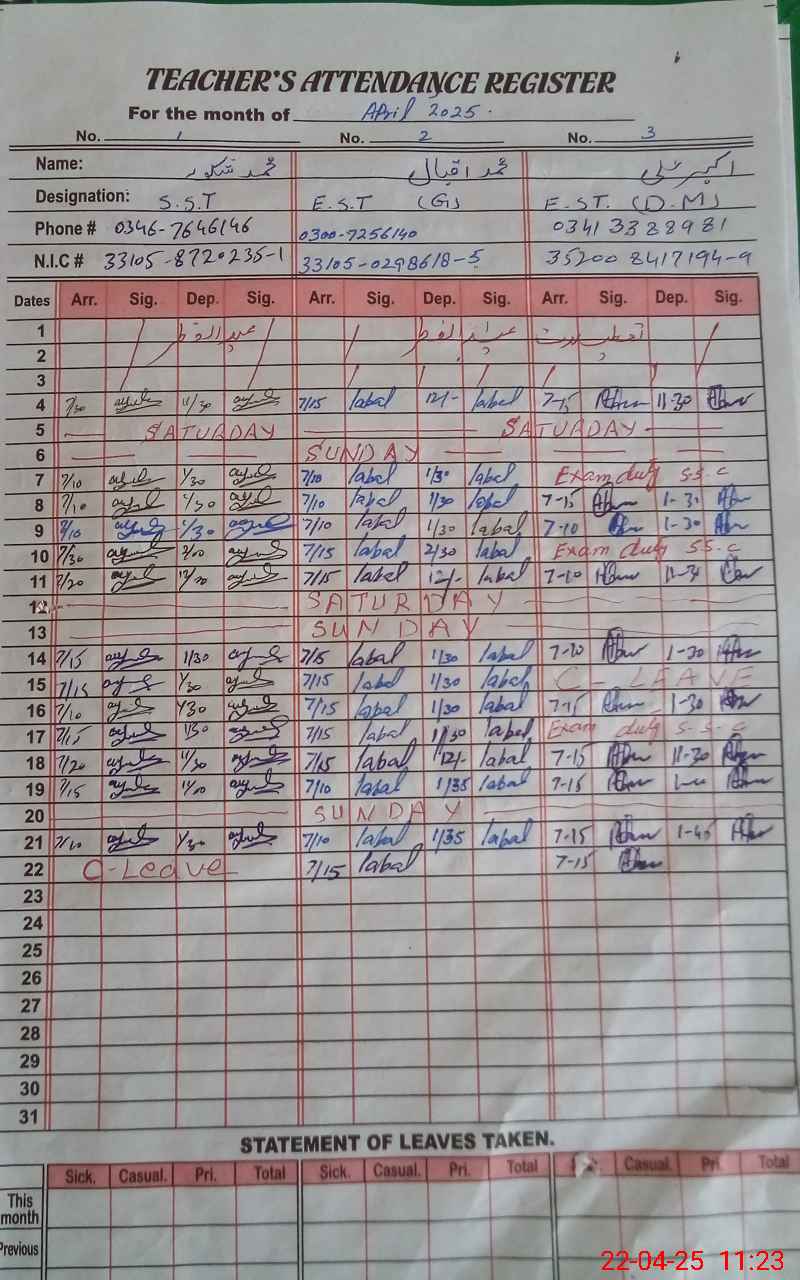 TEACHER'S ATTENDANCE REGISTER
For the month of April 2025.
No. 1 No. 2 No. 3
Name: محمد شکور محمد اقبال اکبر علی
Designation: S.S.T E.S.T (G) E.ST. (D.M)
Phone # 0346-7646146 0300-7256140 0341 3388981
N.I.C # 33105-8720235-1 33105-0298618-5 35200 8417194-9
Dates Arr. Sig. Dep. Sig. Arr. Sig. Dep. Sig. Arr. Sig. Dep. Sig.
1 عید الفطر عید الفطر
2
3
4 7/30 11/30 7/15 Iqbal 12/- Iqbal 7-15 11-30
5 SATURDAY SATURDAY
6 SUNDAY
7 7/10 1/30 7/10 Iqbal 1/30 Iqbal Exam duty S.S.C
8 7/10 1/30 7/10 Iqbal 1/30 Iqbal 7-15 1-30
9 7/10 1/30 7/10 Iqbal 1/30 Iqbal 7-10 1-30
10 7/30 7/15 Iqbal 2/30 Iqbal Exam duty S.S.C
11 7/20 7/15 Iqbal 12/- Iqbal 7-10 11-30
12 SATURDAY
13 SUNDAY
14 7/15 1/30 7/15 Iqbal 1/30 Iqbal 7-10 1-30
15 7/15 1/30 7/15 Iqbal 1/30 Iqbal C-LEAVE
16 7/10 1/30 7/15 Iqbal 1/30 Iqbal 7-15 1-30
17 7/15 1/30 7/15 Iqbal 1/30 Iqbal Exam duty S.S.C
18 7/20 11/30 7/15 Iqbal 12/- Iqbal 7-15 11-30
19 7/15 7/10 Iqbal 1/35 Iqbal 7-15
20 SUNDAY
21 7/10 1/30 7/10 Iqbal 1/35 Iqbal 7-15 1-45
22 C-Leave 7/15 Iqbal 7-15
23
24
25
26
27
28
29
30
31
STATEMENT OF LEAVES TAKEN.
Sick. Casual. Pri. Total Sick. Casual. Pri. Total Casual. Pri. Total
This month
Previous
22-04-25 11:23